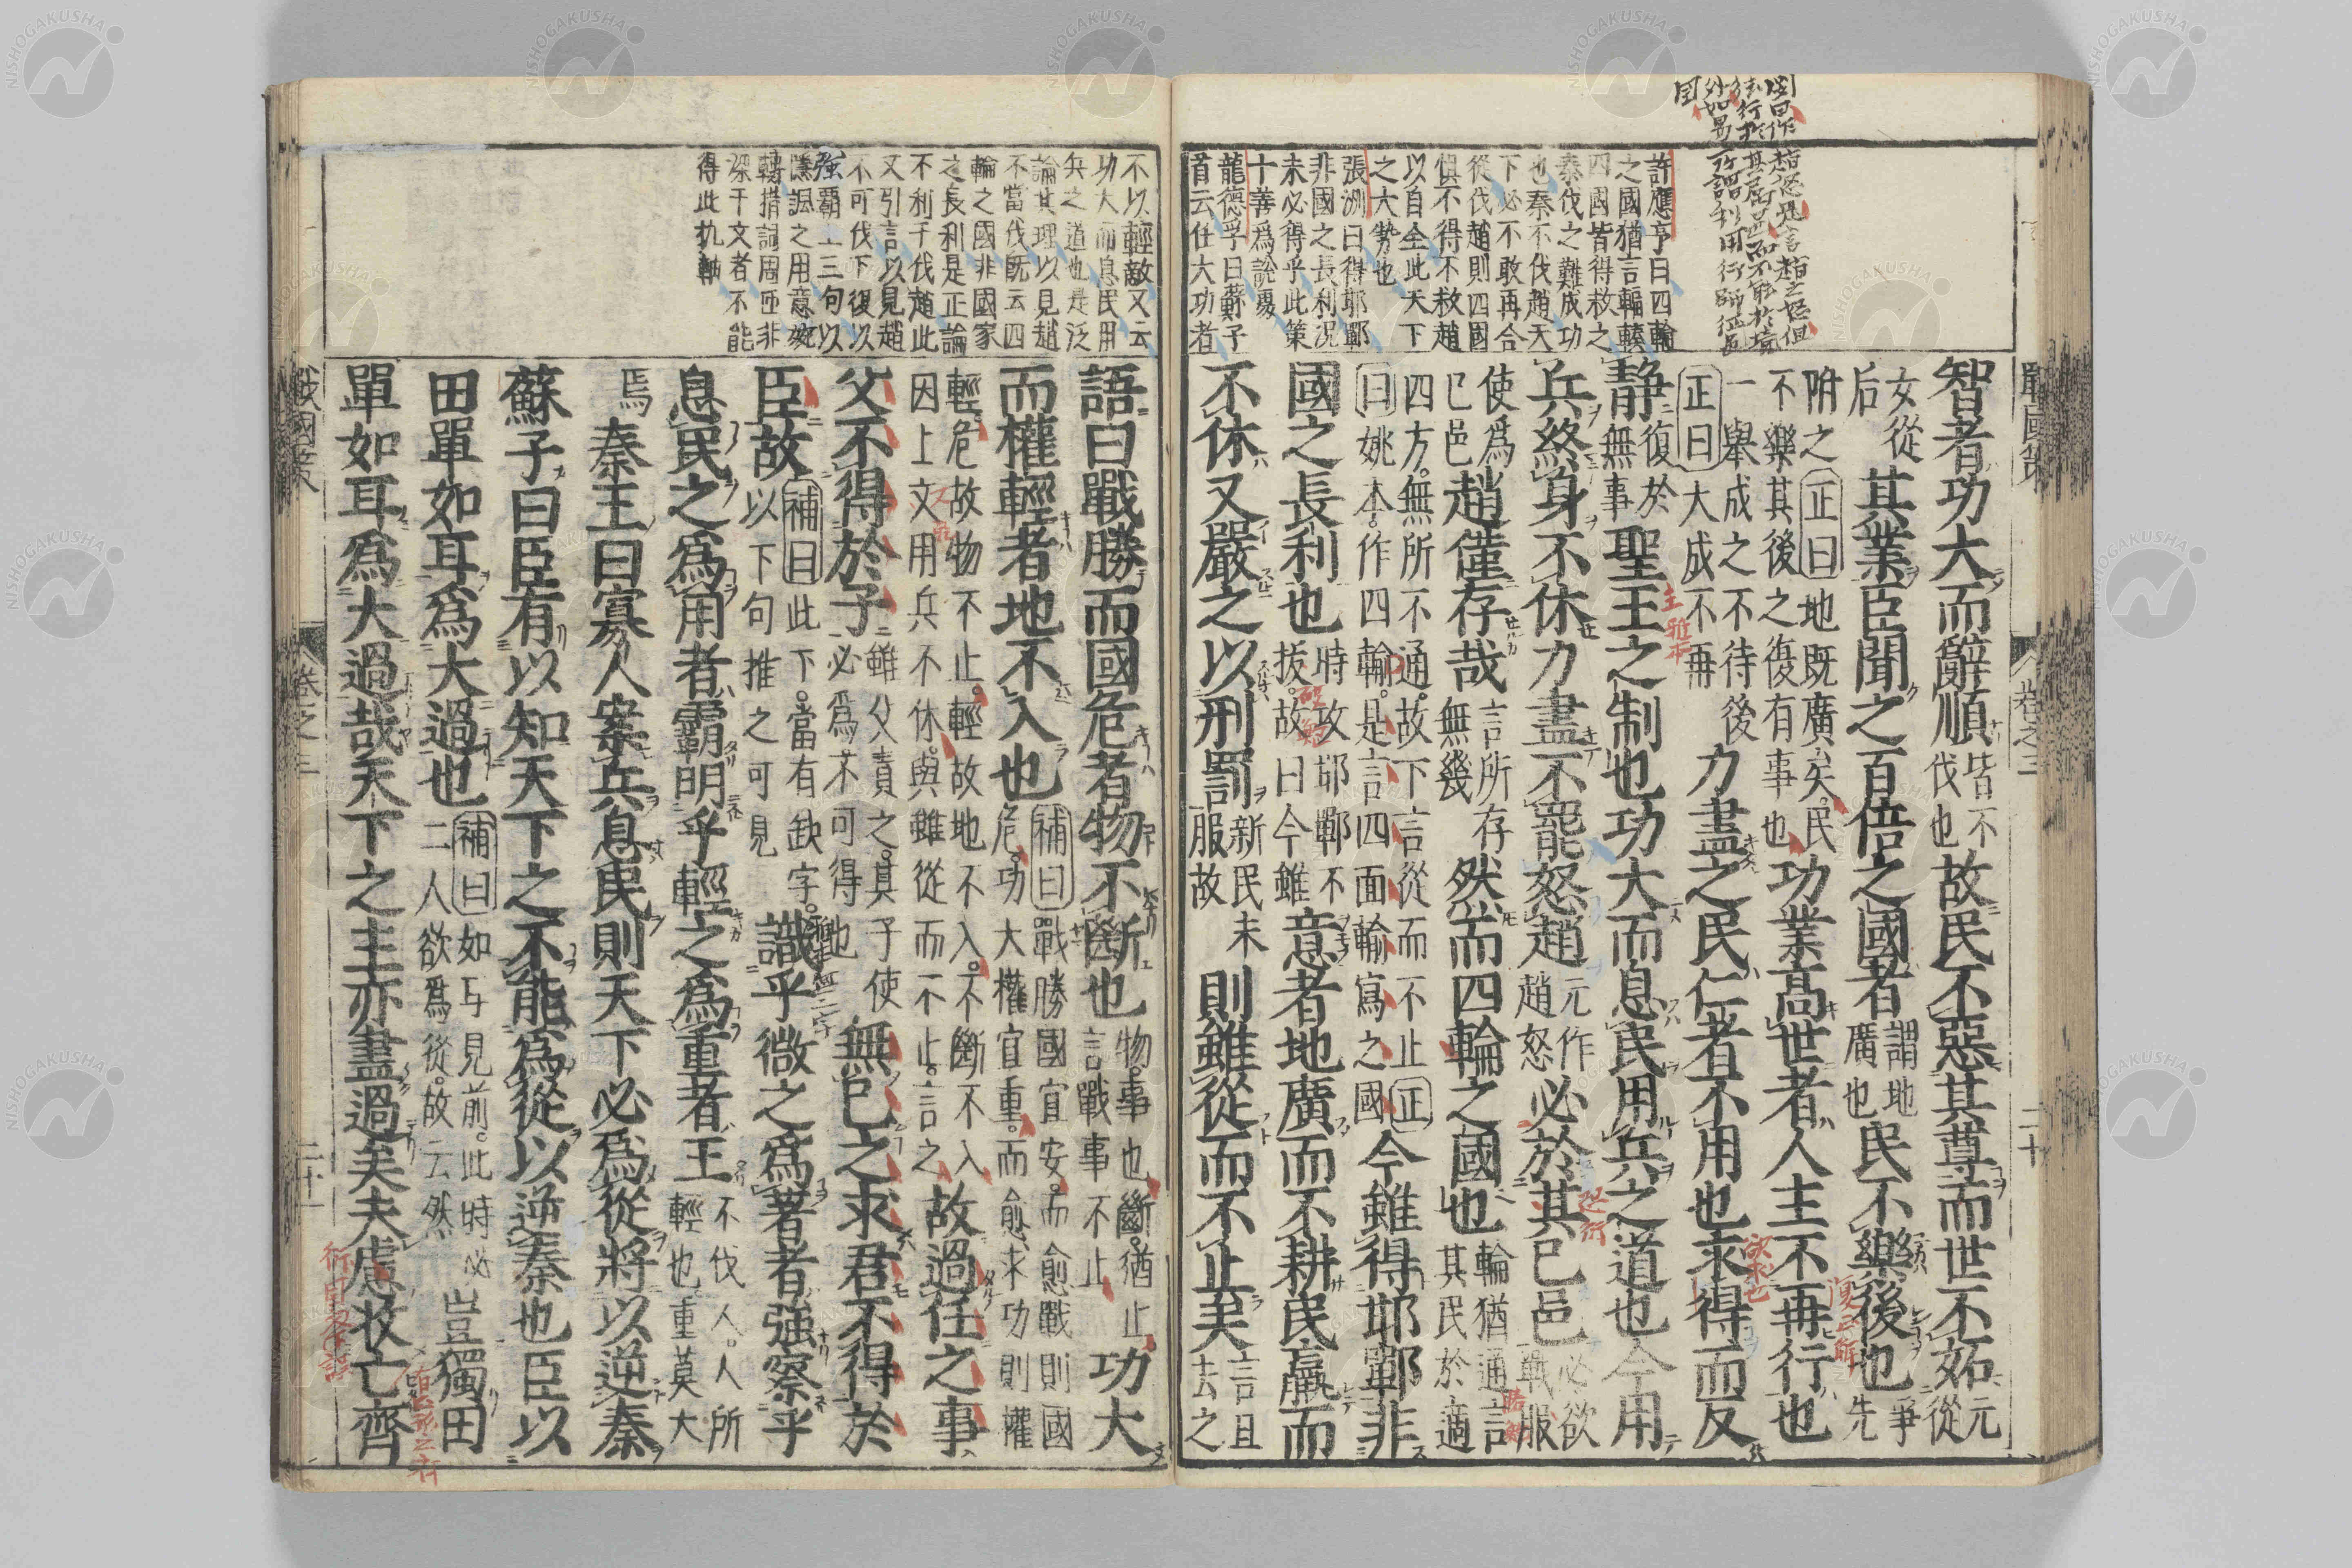 許應亨曰四輪
之國猶言輻輳
四國皆得救之
秦伐之難成功
也秦不伐趙天
下必不敢再合
從伐趙則四國
俱不得不救趙
以自全此天下
之大勢也
張洲曰得邯鄲
非國之長利況
未必得乎此策
十善為說處
龍德孚曰蘇子
首云仕大功者
戰國策
卷之三
二十
智者功大而辭順皆不伐也故民不惡其尊而世不妬元從
女從后其業臣聞之百倍之國者謂地廣也民不樂後也爭先
附之正曰地既廣矣民不樂其後之復有事也功業高世者人主不再行也
一舉成之不待後正曰大成不再力盡之民仁者不用也求得而反
靜復於無事聖王之制也功大而息民用兵之道也今用
兵終身不休力盡不罷怒趙元作趙怒必於其己邑必欲戰服
使為己邑趙僅存哉言所存無幾然而四輪之國也輪猶通言其民於適
四方無所不通故下言從而不止正曰姚本作四輪是言四面輸寫之國今雖得邯鄲非
國之長利也時攻邯鄲不拔故曰今雖意者地廣而不耕民羸而
不休又嚴之以刑罰新民未服故則雖從而不止矣言且去之
不以輕敵又云
功大而息民用
兵之道也是泛
論其理以見趙
不當伐既云四
輪之國非國家
之長利是正論
不利于伐趙此
又引言以見趙
不可伐下復以
強霸一三句以
隱諷之用意婉
轉措詞周匝非
深于文者不能
得此机軸
語曰戰勝而國危者物不斷也物事也斷猶止言戰事不止功大
而權輕者地不入也補曰戰勝國宜安而愈戰則國危功大權宜重而愈求功則權
輕危故物不止輕故地不入不斷不入因上文用兵不休與雖從而不止言之故過任之事
父不得於子雖父責之其子使必為不可得也無已之求君不得於
臣故補曰此下當有缺字以下句推之可見識乎微之為著者強察乎
息民之為用者霸明乎輕之為重者王不伐人人所輕也重莫大
焉秦王曰寡人案兵息民則天下必為從將以逆秦
蘇子曰臣有以知天下之不能為從以逆秦也臣以
田單如耳為大過也補曰如耳見前此時必二人欲為從故云然豈獨田
單如耳為大過哉天下之主亦盡過矣夫慮收亡齊
戰國策
卷之三
二十一